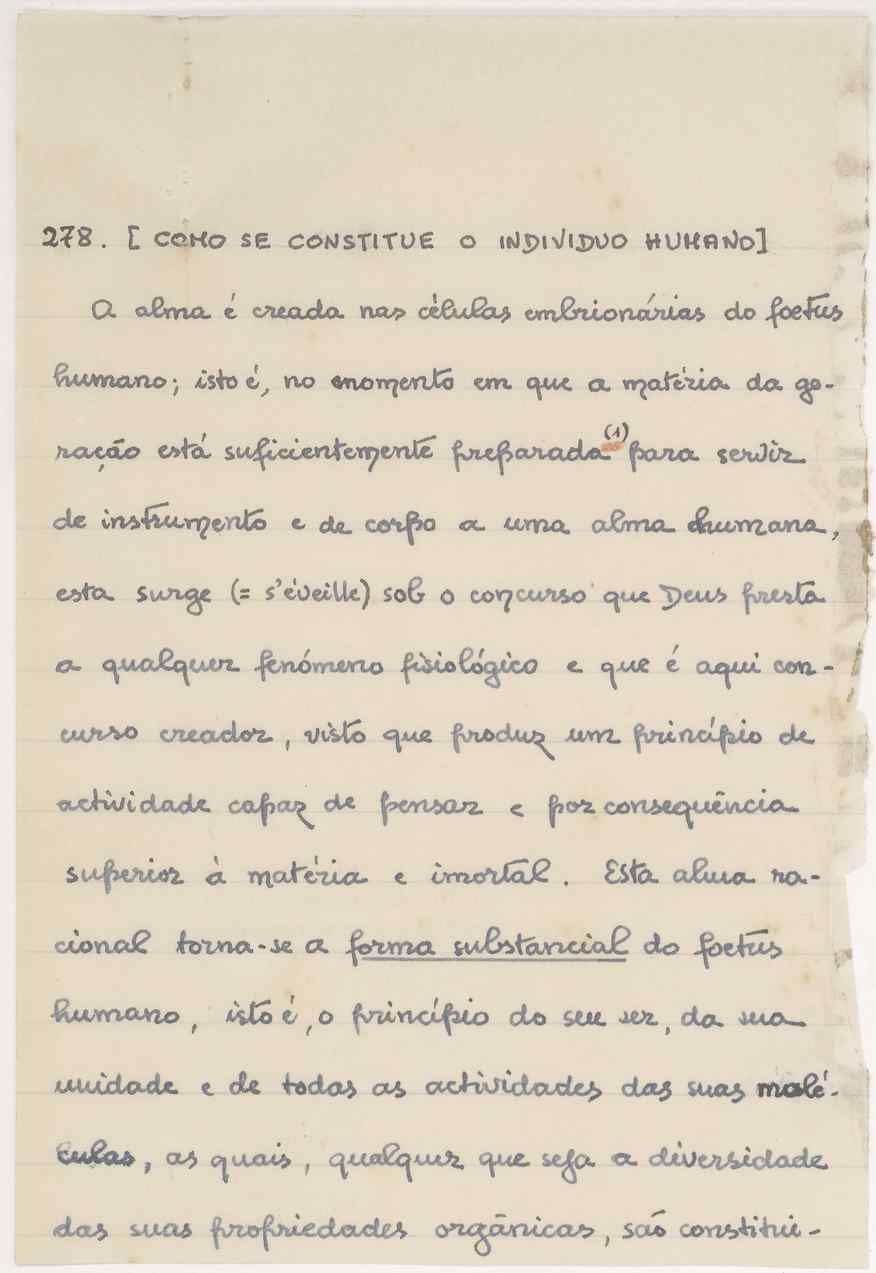 278. [ COMO SE CONSTITUE O INDIVIDUO HUMANO]
A alma é creada nas células embrionárias do foetus
humano; isto é, no momento em que a matéria da ge-
ração está suficientemente preparada (1) para servir
de instrumento e de corpo a uma alma humana,
esta surge (= s'éveille) sob o concurso que Deus presta
a qualquer fenómeno fisiológico e que é aqui con-
curso creador, visto que produz um princípio de
actividade capaz de pensar e por consequência
superior à matéria e imortal. Esta alma ra-
cional torna-se a forma substancial do foetus
humano, isto é, o princípio do seu ser, da sua
unidade e de todas as actividades das suas molé-
culas, as quais, qualquer que seja a diversidade
das suas propriedades orgânicas, são constitui-